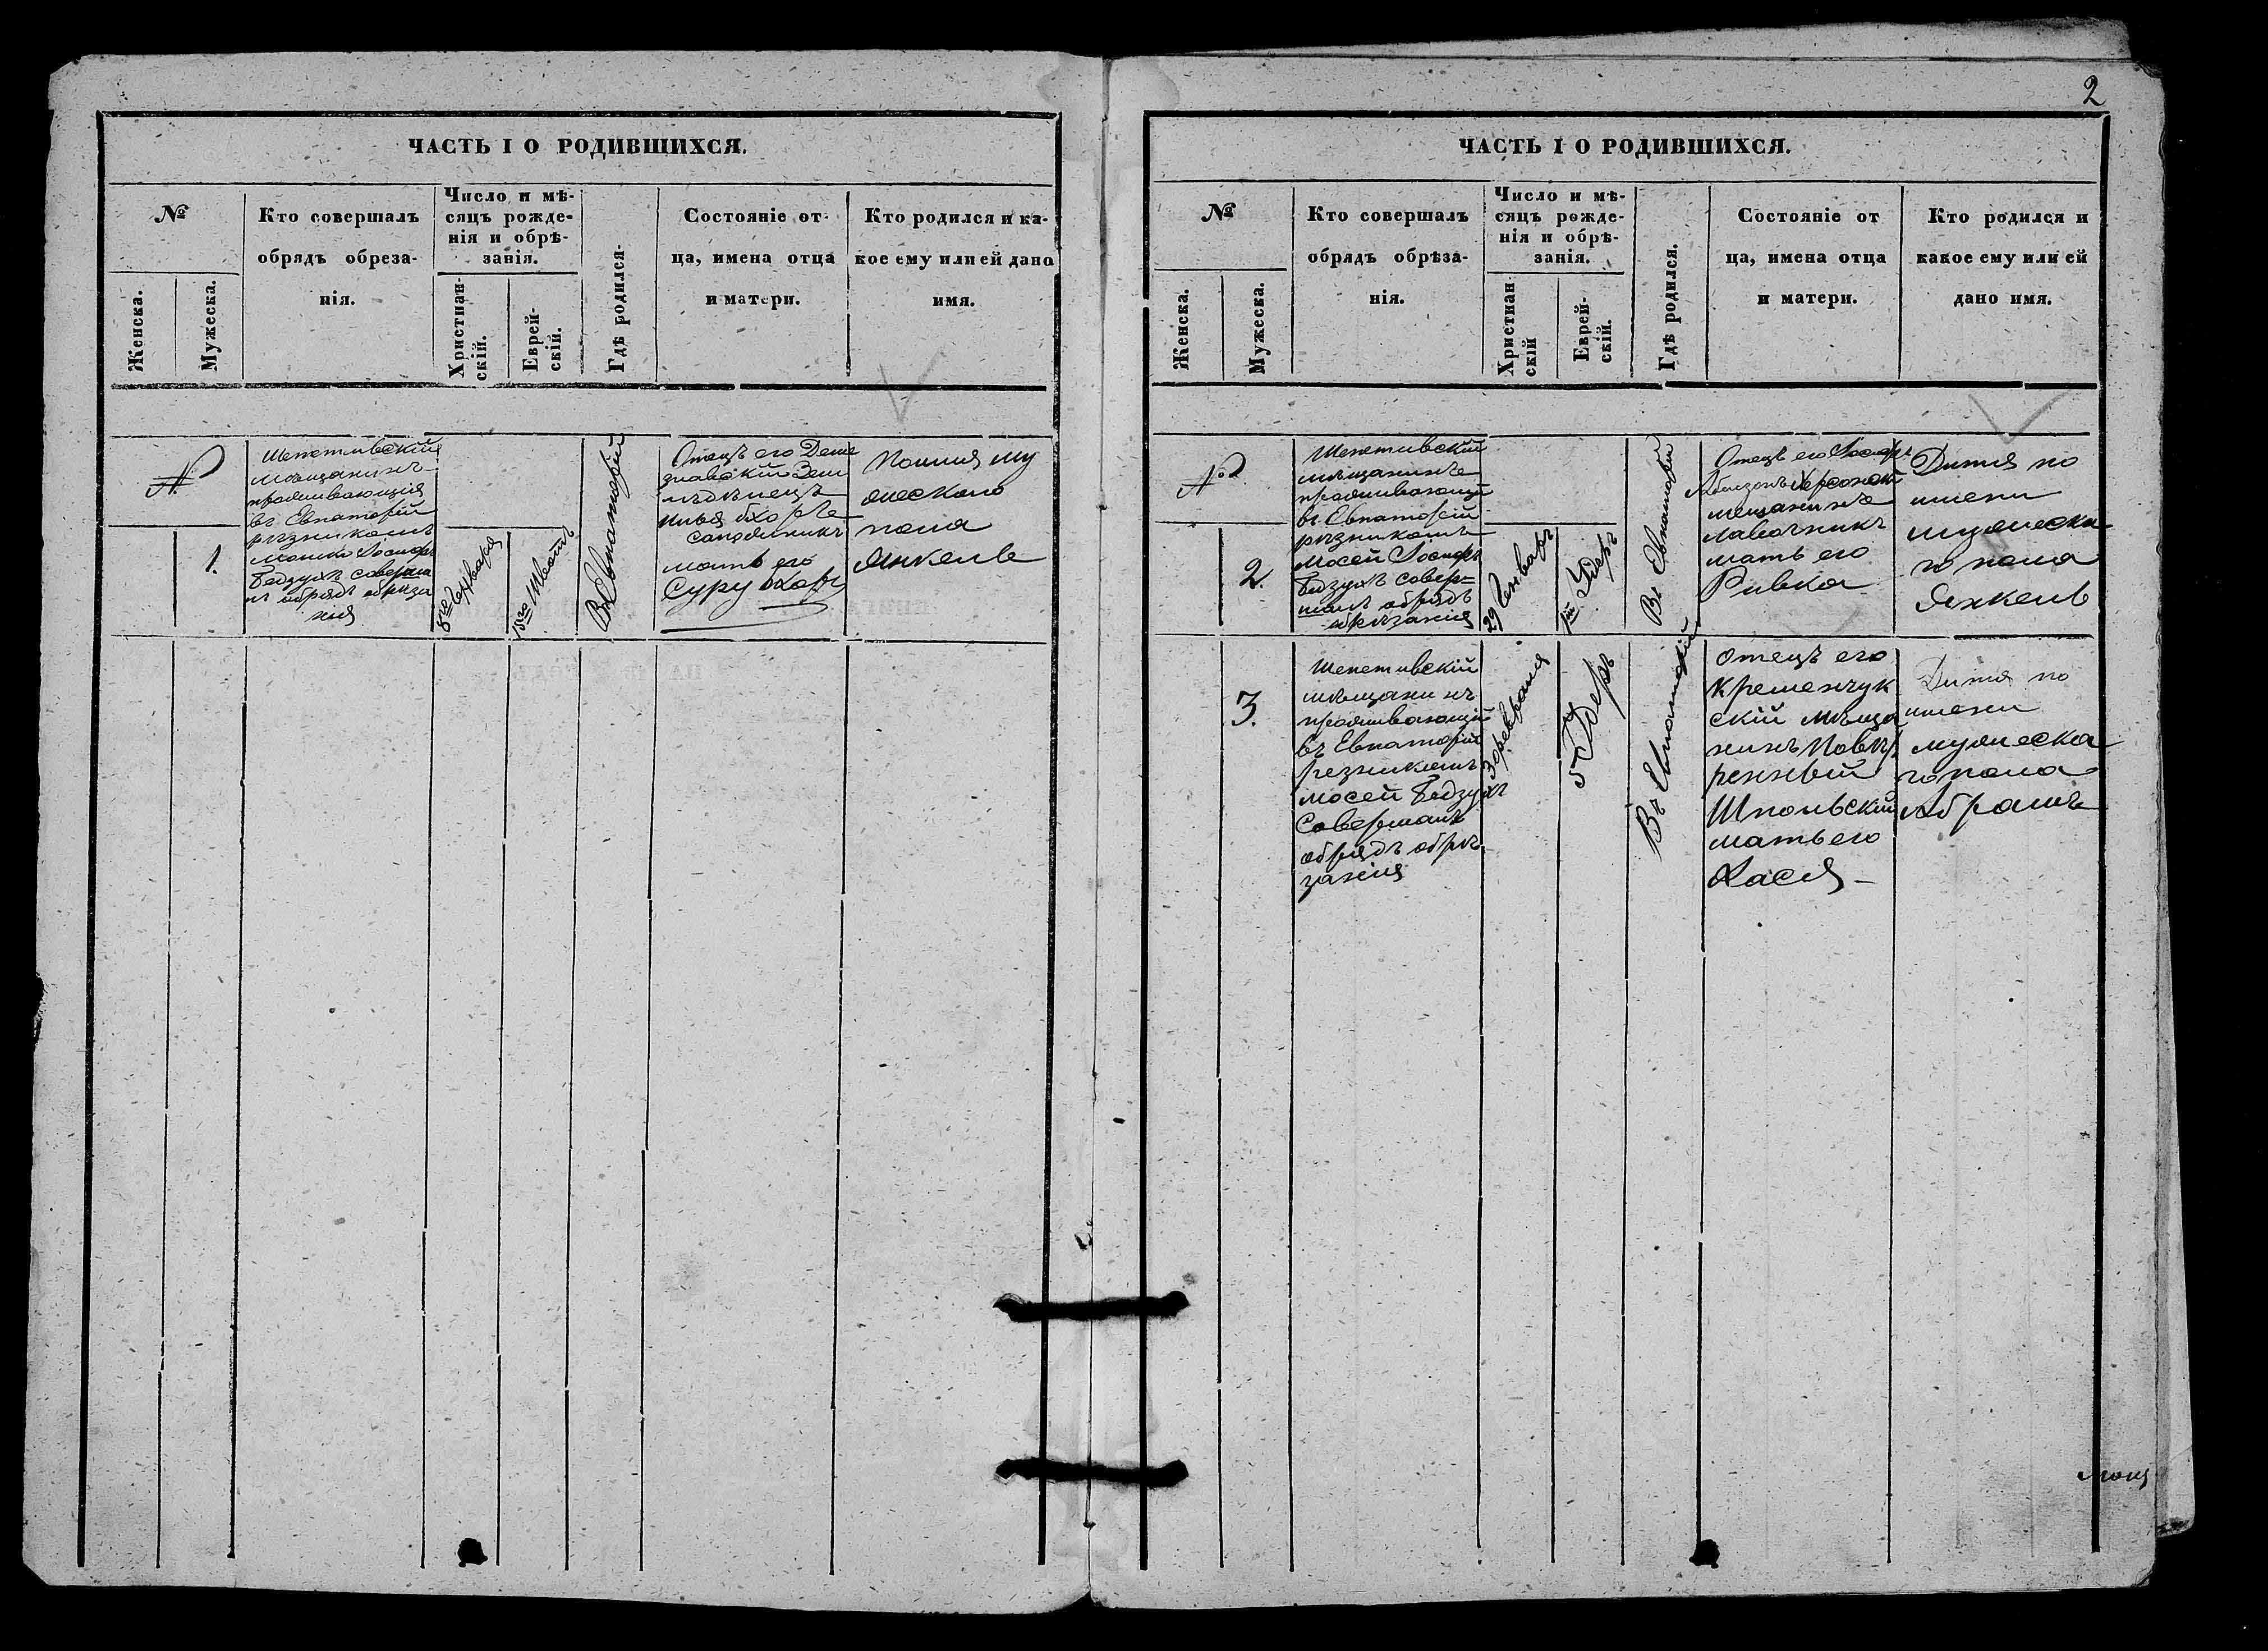 ЧАСТЬ I О РОДИВШИХСЯ.
№
Женска.
Мужеска.
Кто совершалъ
обрядъ обреза-
нія.
Число и мѣ-
сяцъ рожде-
нія и обрѣ-
занія.
Христиан-
скій.
Еврей-
скій.
Гдѣ родился.
Состояніе от-
ца, имена отца
и матери.
Кто родился и ка-
кое ему или ей дано
имя.
№
1.
Шепетивскій
мѣщанинъ
проживающія
въ Евпаторіи
рѣзникомъ
Мошко
соверша
лъ обрядъ обреза
нія
8го Января
15го Шватъ
Въ Евпаторіи
Отецъ его
Зем
лѣдѣлецъ
мать его
Суру
му
жескаго
пола
Янкель
2
ЧАСТЬ I О РОДИВШИХСЯ.
№
Женска.
Мужеска.
Кто совершалъ
обрядъ обрѣза-
нія.
Число и мѣ-
сяцъ рожде-
нія и обрѣ-
занія.
Христиан
скій
Еврей-
скій.
Гдѣ родился.
Состояніе от
ца, имена отца
и матери.
Кто родился и
какое ему или ей
дано имя.
№
2.
Шепетивскій
мѣщанинъ
проживающій
въ Евпаторіи
рѣзникомъ
Мосей Іосифъ
совер=
шалъ обрядъ
обрѣзанія
29 Генваръ
Адеръ
Въ Евпаторіи
Отецъ его Іосифъ
Херсонскій
мещанинъ
лавочникъ
мать его
Ривка
Дитя по
имени
мужеска
го пола
Янкель
3.
Шепетивскій
мѣщанинъ
проживающій
въ Евпаторіи
резникомъ
Мосей
Совершалъ
обрядъ обрѣ
занія
3 февраля
5 Адеръ
Въ Евпаторіи
Отецъ его
Кременчук
скій мѣща
нинъ
Шпольскій
мать его
Хася
Дитя по
имени
мужеска
го пола
Абрамъ